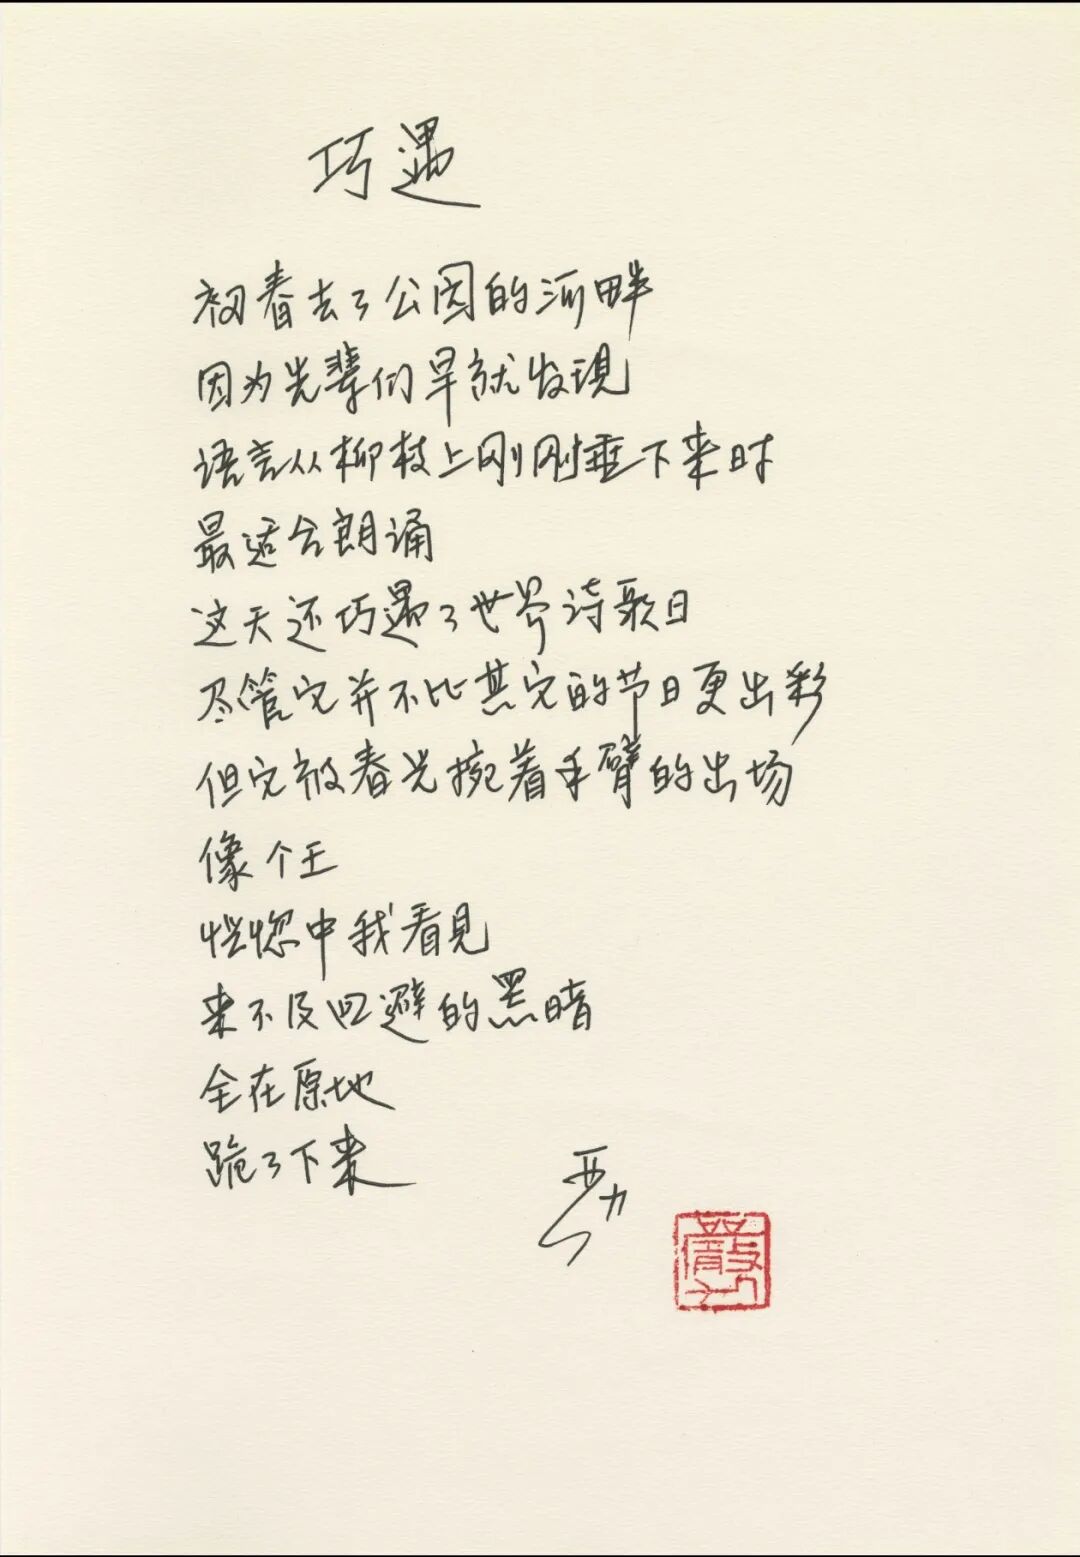 巧遇
初春去了公园的河畔
因为先辈们早就发现
语言从柳枝上刚刚垂下来时
最适合朗诵
这天还巧遇了世界诗歌日
尽管它并不比其它的节日更出彩
但它被春光挽着手臂的出场
像个王
恍惚中我看見
来不及回避的黑暗
全在原地
跪了下来
严力
嚴力